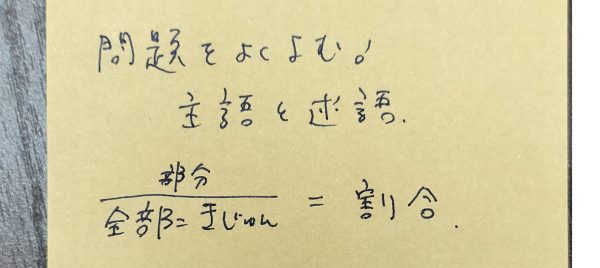 問題をよくよむ!
主語と述語.
部分
全部=きじゅん = 割合.